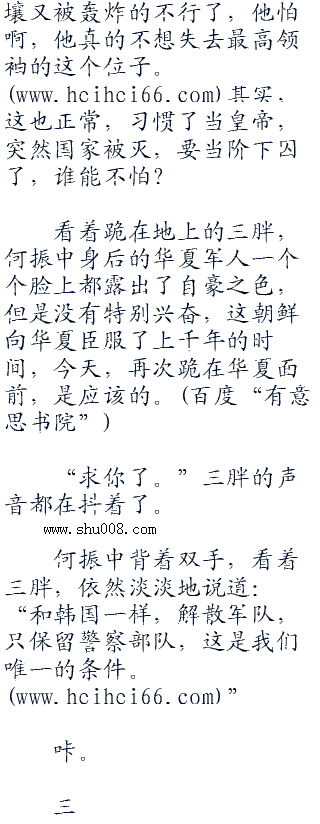 壤又被轰炸的不行了，他怕
啊，他真的不想失去最高领
袖的这个位子。
(www.hcihci66.com)其实，
这也正常，习惯了当皇帝，
突然国家被灭，要当阶下囚
了，谁能不怕？
看着跪在地上的三胖，
何振中身后的华夏军人一个
个脸上都露出了自豪之色，
但是没有特别兴奋，这朝鲜
向华夏臣服了上千年的时
间，今天，再次跪在华夏面
前，是应该的。(百度“有意
思书院”)
“求你了。”三胖的声
音都在抖着了。
www.shu008.com
何振中背着双手，看着
三胖，依然淡淡地说道：
“和韩国一样，解散军队，
只保留警察部队，这是我们
唯一的条件。
(www.hcihci66.com)”
咔。
三